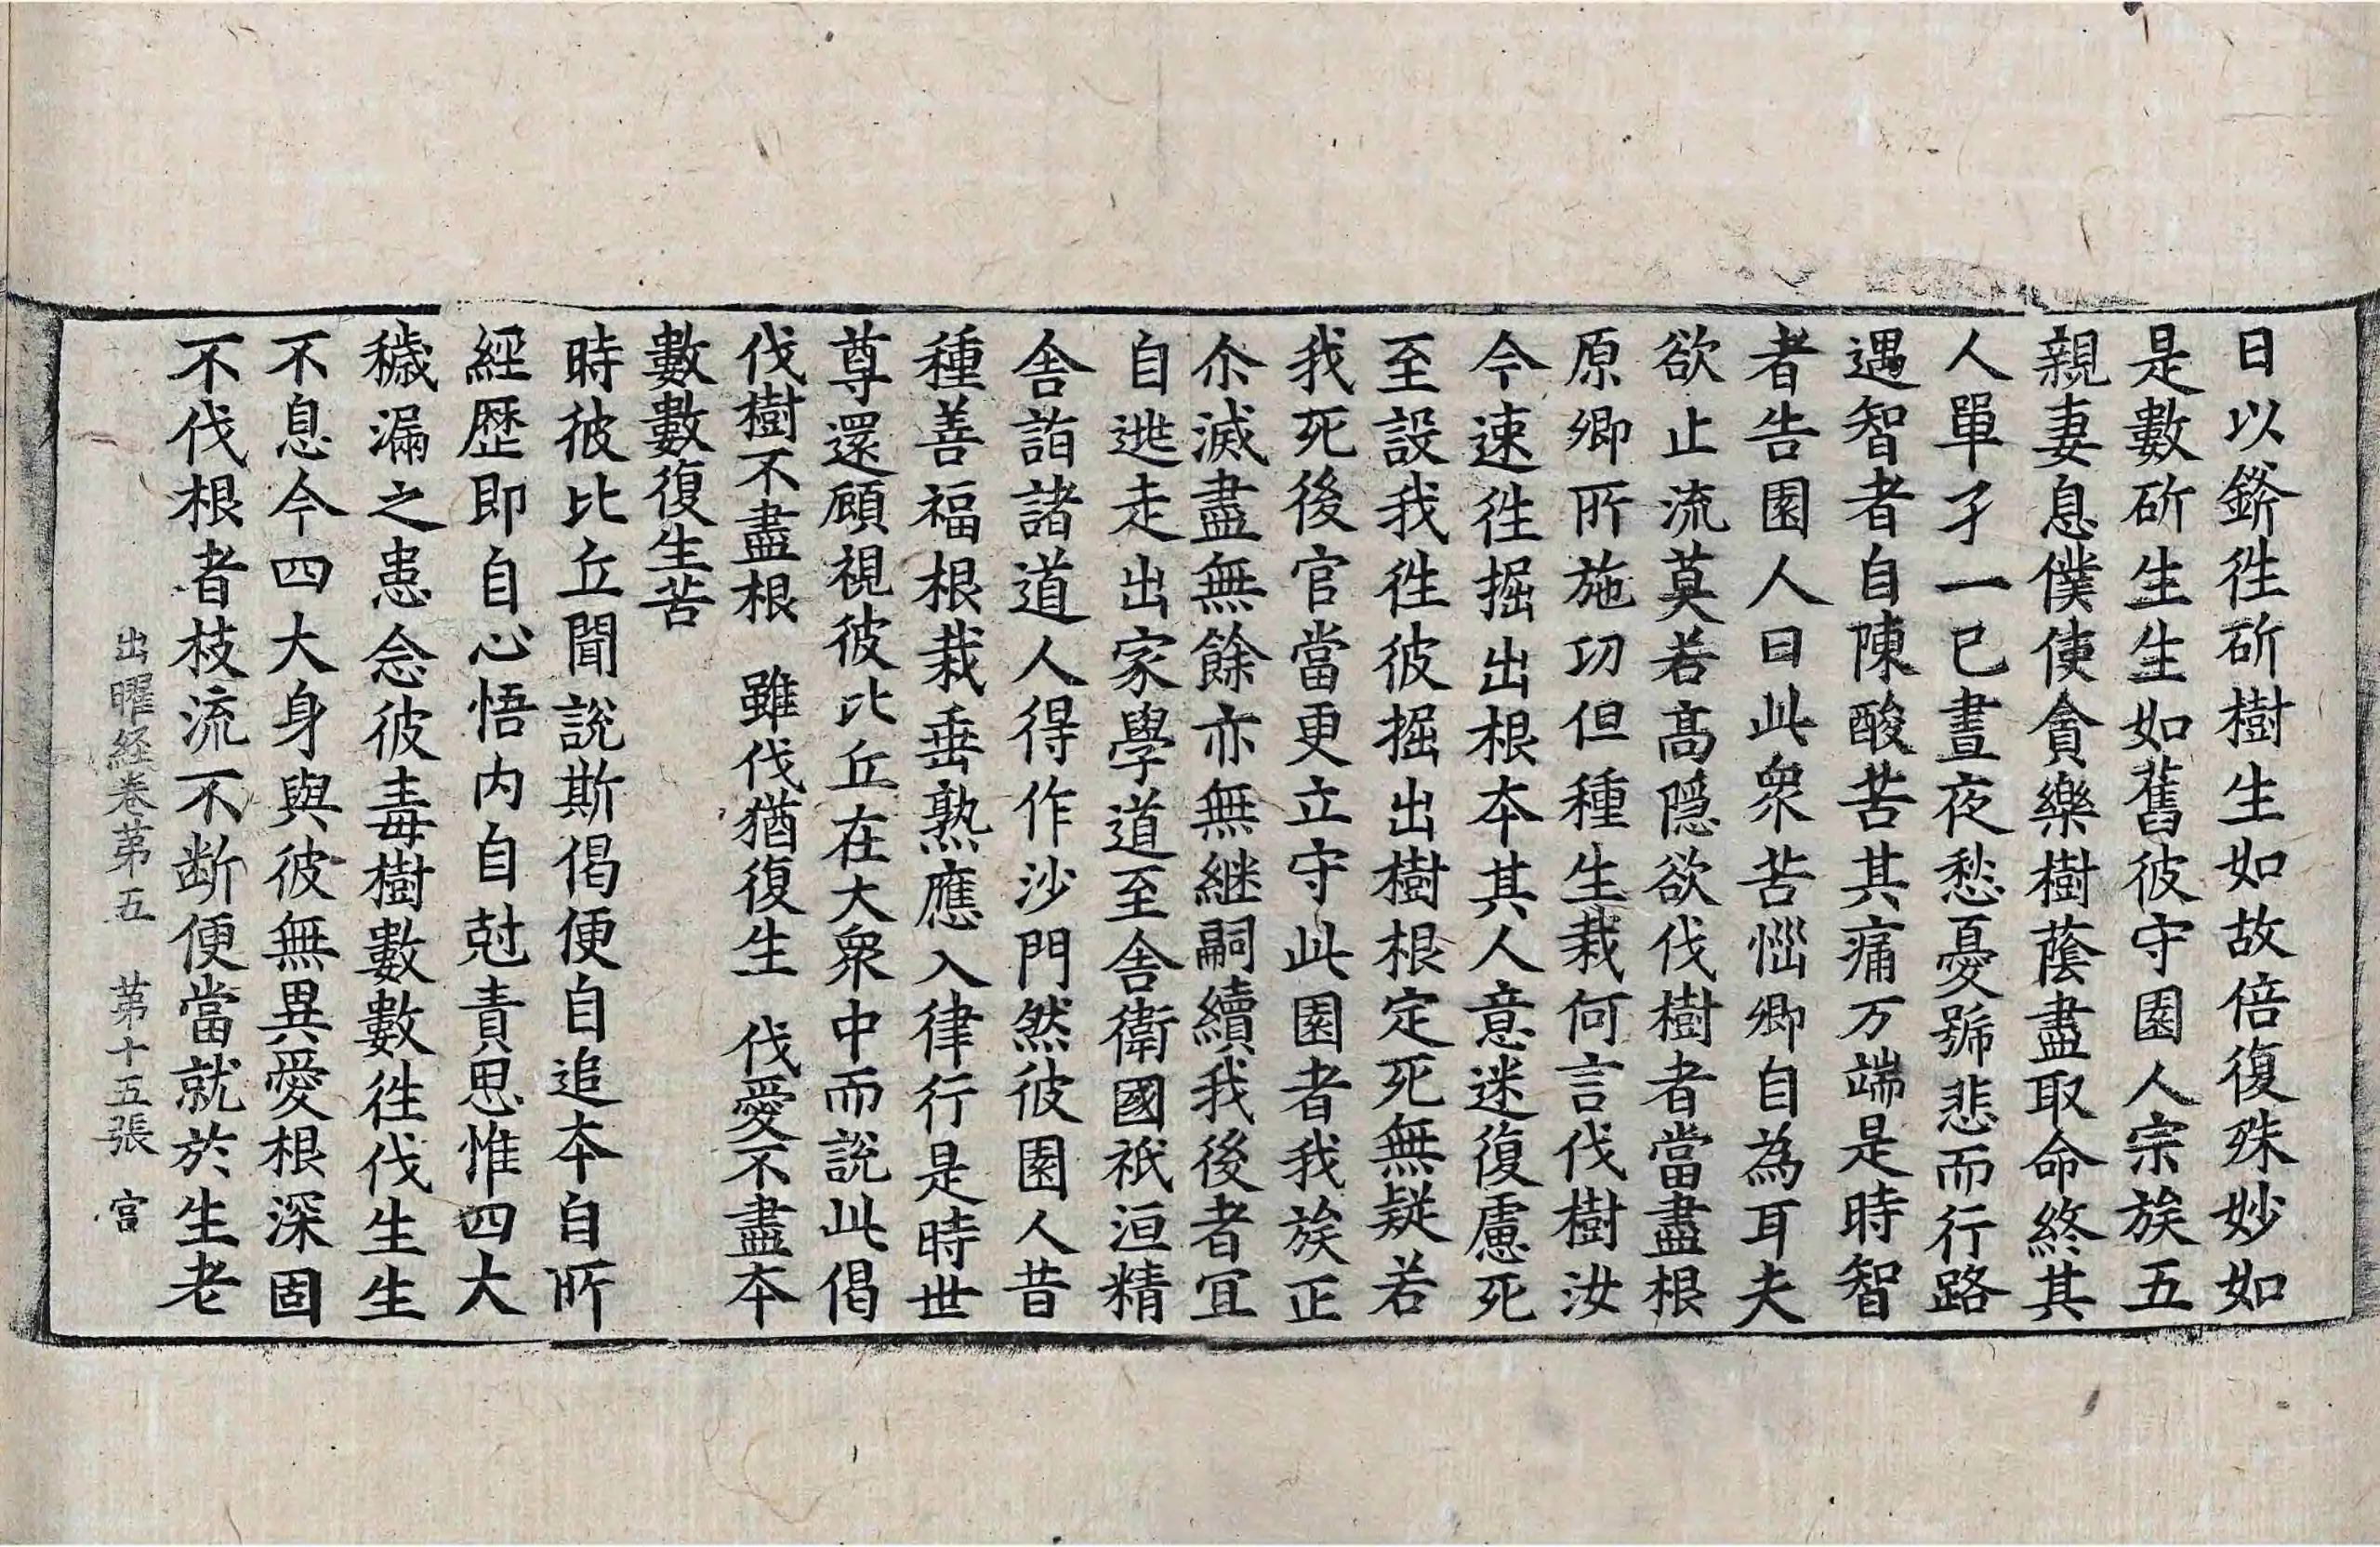 日以鏘徃斫樹生如故倍復殊妙如
是數斫生生如舊彼守園人宗族五
親妻息僕使貪樂樹蔭盡取命終其
人單孑一已晝夜愁憂號悲而行路
遇智者自陳酸苦其痛万端是時智
者告園人曰此衆苦惱卿自為耳夫
欲止流莫若高隱欲伐樹者當盡根
原卿所施功但種生栽何言伐樹汝
今速徃掘出根本其人意迷復慮死
至設我徃彼掘出樹根定死無疑若
我死後官當更立守此園者我族正
尒滅盡無餘亦無継嗣續我後者冝
自逃走出家學道至舍衛國祇洹精
舍詣諸道人得作沙門然彼園人昔
種善福根栽垂熟應入律行是時世
尊還顧視彼比丘在大衆中而說此偈
伐樹不盡根　雖伐猶復生　伐愛不盡本
數數復生苦
時彼比丘聞說斯偈便自追本自所
經歷即自心悟内自尅責思惟四大
穢漏之患念彼毒樹數數徃伐生生
不息今四大身與彼無異愛根深固
不伐根者枝流不断便當就於生老
出曜経卷苐五　苐十五張　宫